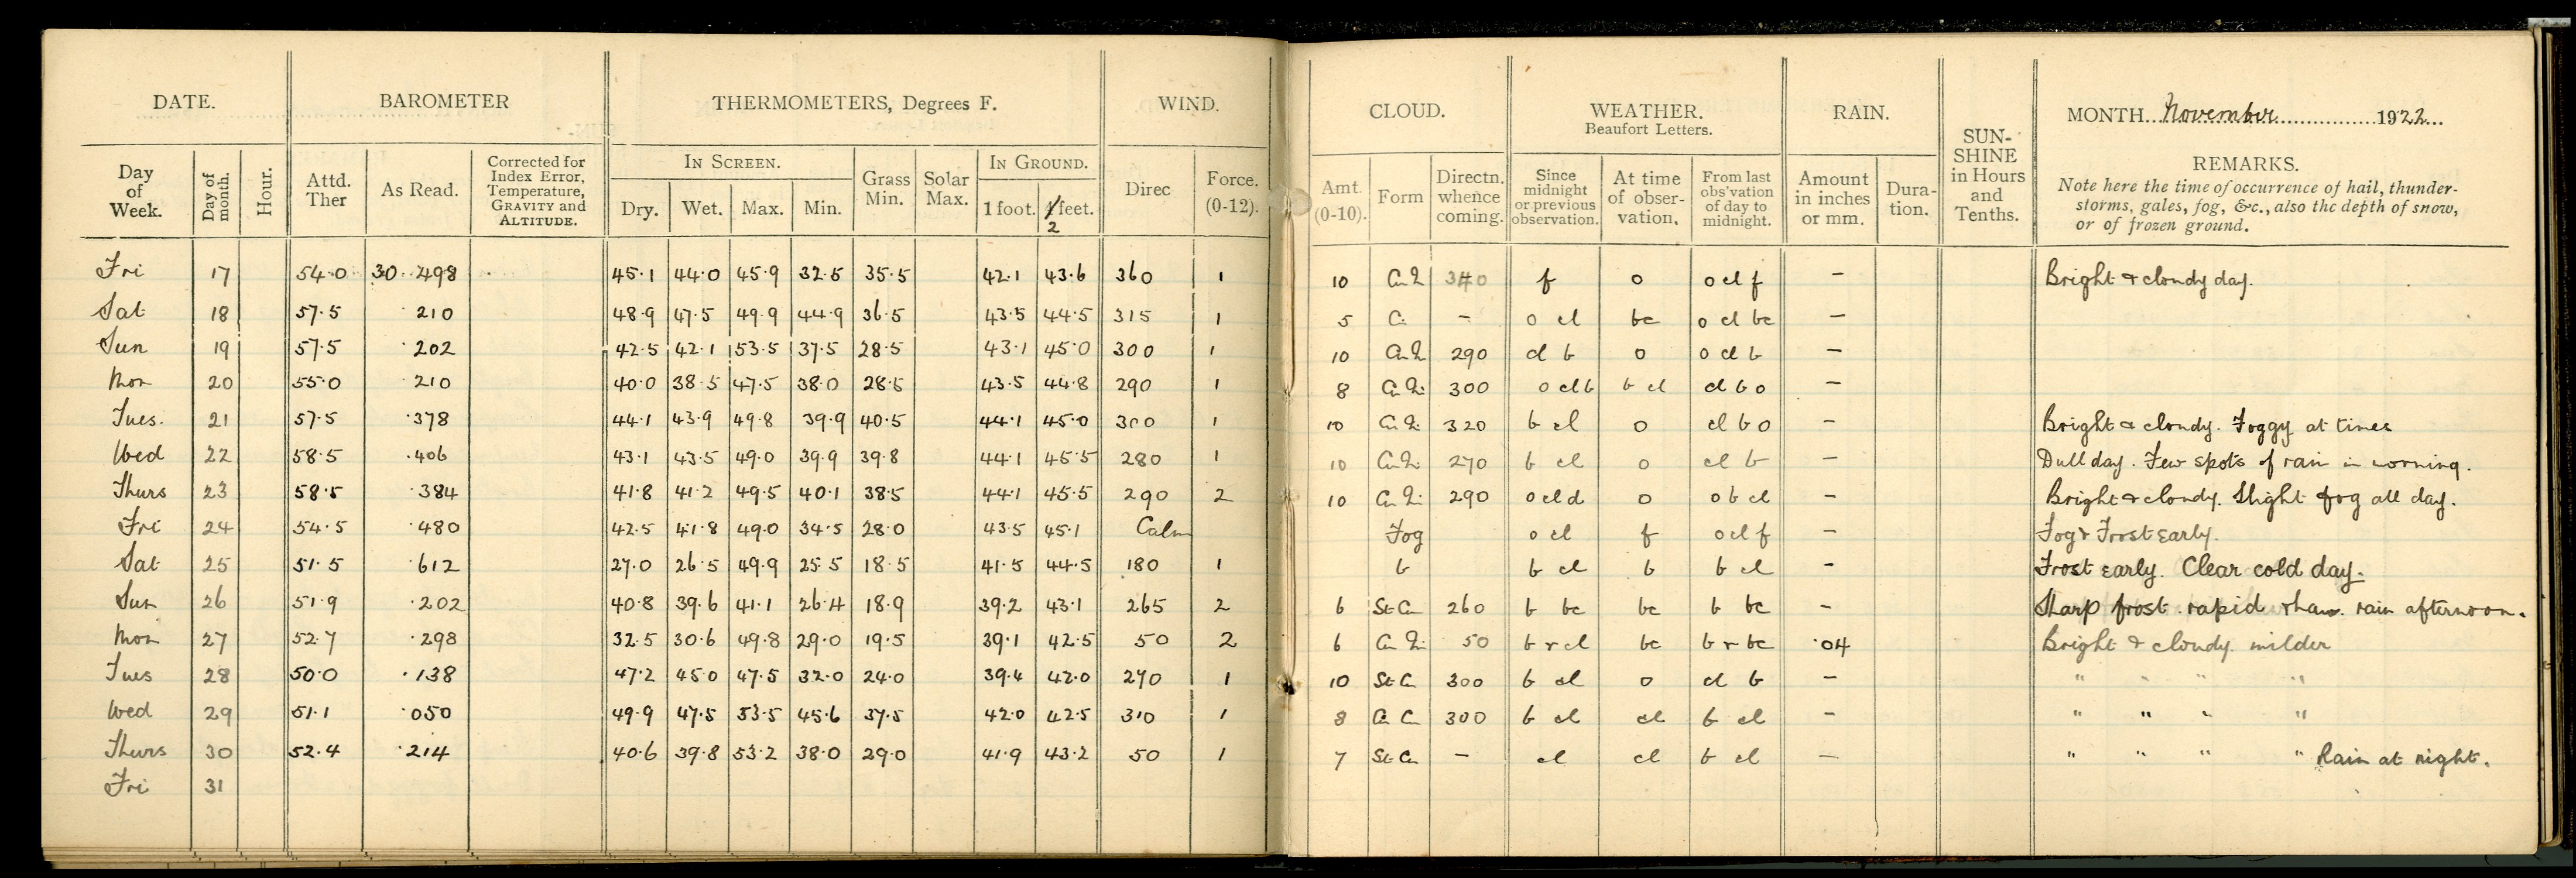 DATE. BAROMETER THERMOMETERS, Degrees F. WIND. CLOUD. WEATHER. Beaufort Letters. RAIN. SUN-SHINE in Hours and Tenths. MONTH November 1922
Day of Week. Day of month. Hour. Attd. Ther As Read. Corrected for Index Error, Temperature, GRAVITY and ALTITUDE. IN SCREEN. Grass Min. Solar Max. IN GROUND. Direc Force. (0-12). Amt. (0-10). Form Directn. whence coming. Since midnight or previous observation. At time of observation. From last obs'vation of day to midnight. Amount in inches or mm. Duration. REMARKS.
Note here the time of occurrence of hail, thunder-
storms, gales, fog, &c., also the depth of snow,
or of frozen ground.
Dry. Wet. Max. Min. 1 foot. feet.
2
Fri 17 54.0 30.498 45.1 44.0 45.9 32.5 35.5 42.1 43.6 360 1 10 340 f o o cl f – Bright & cloudy day.
Sat 18 57.5 .210 48.9 47.5 49.9 44.9 36.5 43.5 44.5 315 1 5 Ci – o cl bc o cl bc –
Sun 19 57.5 .202 42.5 42.1 53.5 37.5 28.5 43.1 45.0 300 1 10 290 cl b o o cl b –
Mon 20 55.0 .210 40.0 38.5 47.5 38.0 28.5 43.5 44.8 290 1 8 300 o cl b b cl cl b o –
Tues. 21 57.5 .378 44.1 43.9 49.8 39.9 40.5 44.1 45.0 300 1 10 320 b cl o cl b o – Bright & cloudy. Foggy at times
Wed 22 58.5 .406 43.1 43.5 49.0 39.9 39.8 44.1 45.5 280 1 10 270 b cl o cl b – Dull day. Few spots of rain in morning.
Thurs 23 58.5 .384 41.8 41.2 49.5 40.1 38.5 44.1 45.5 290 2 10 290 o cl d o o b cl – Bright & cloudy. Slight fog all day.
Fri 24 54.5 .480 42.5 41.8 49.0 34.5 28.0 43.5 45.1 Calm Fog o cl f o cl f – Fog & Frost early.
Sat 25 51.5 .612 27.0 26.5 49.9 25.5 18.5 41.5 44.5 180 1 b b cl b b cl – Frost early. Clear cold day.
Sun 26 51.9 .202 40.8 39.6 41.1 26.4 18.9 39.2 43.1 265 2 6 St Cu 260 b bc bc b bc – Sharp frost. rapid thaw. rain afternoon.
Mon 27 52.7 .298 32.5 30.6 49.8 29.0 19.5 39.1 42.5 50 2 6 50 b r cl bc b r bc .04 Bright & cloudy. milder
Tues 28 50.0 .138 47.2 45.0 47.5 32.0 24.0 39.4 42.0 290 1 10 St Cu 300 b cl o cl b – " " " "
Wed 29 51.1 .050 49.9 47.5 53.5 45.6 37.5 42.0 42.5 310 1 8 300 b cl cl b cl – " " " "
Thurs 30 52.4 .214 40.6 39.8 53.2 38.0 29.0 41.9 43.2 50 1 7 St Cu – cl cl b cl – " " " " Rain at night.
Fri 31